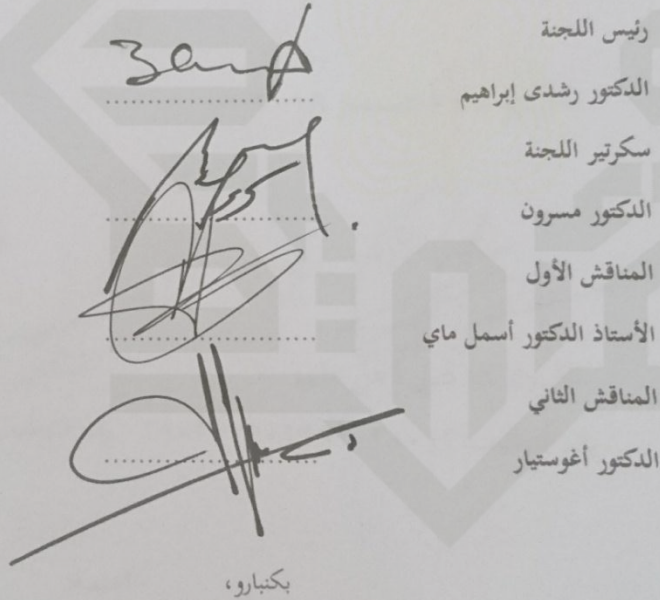 رئيس اللجنة
الدكتور رشدى إبراهيم
سكرتير اللجنة
الدكتور مسرون
المناقش الأول
الأستاذ الدكتور أسمل ماي
المناقش الثاني
الدكتور أغوستيار
بكنبارو،